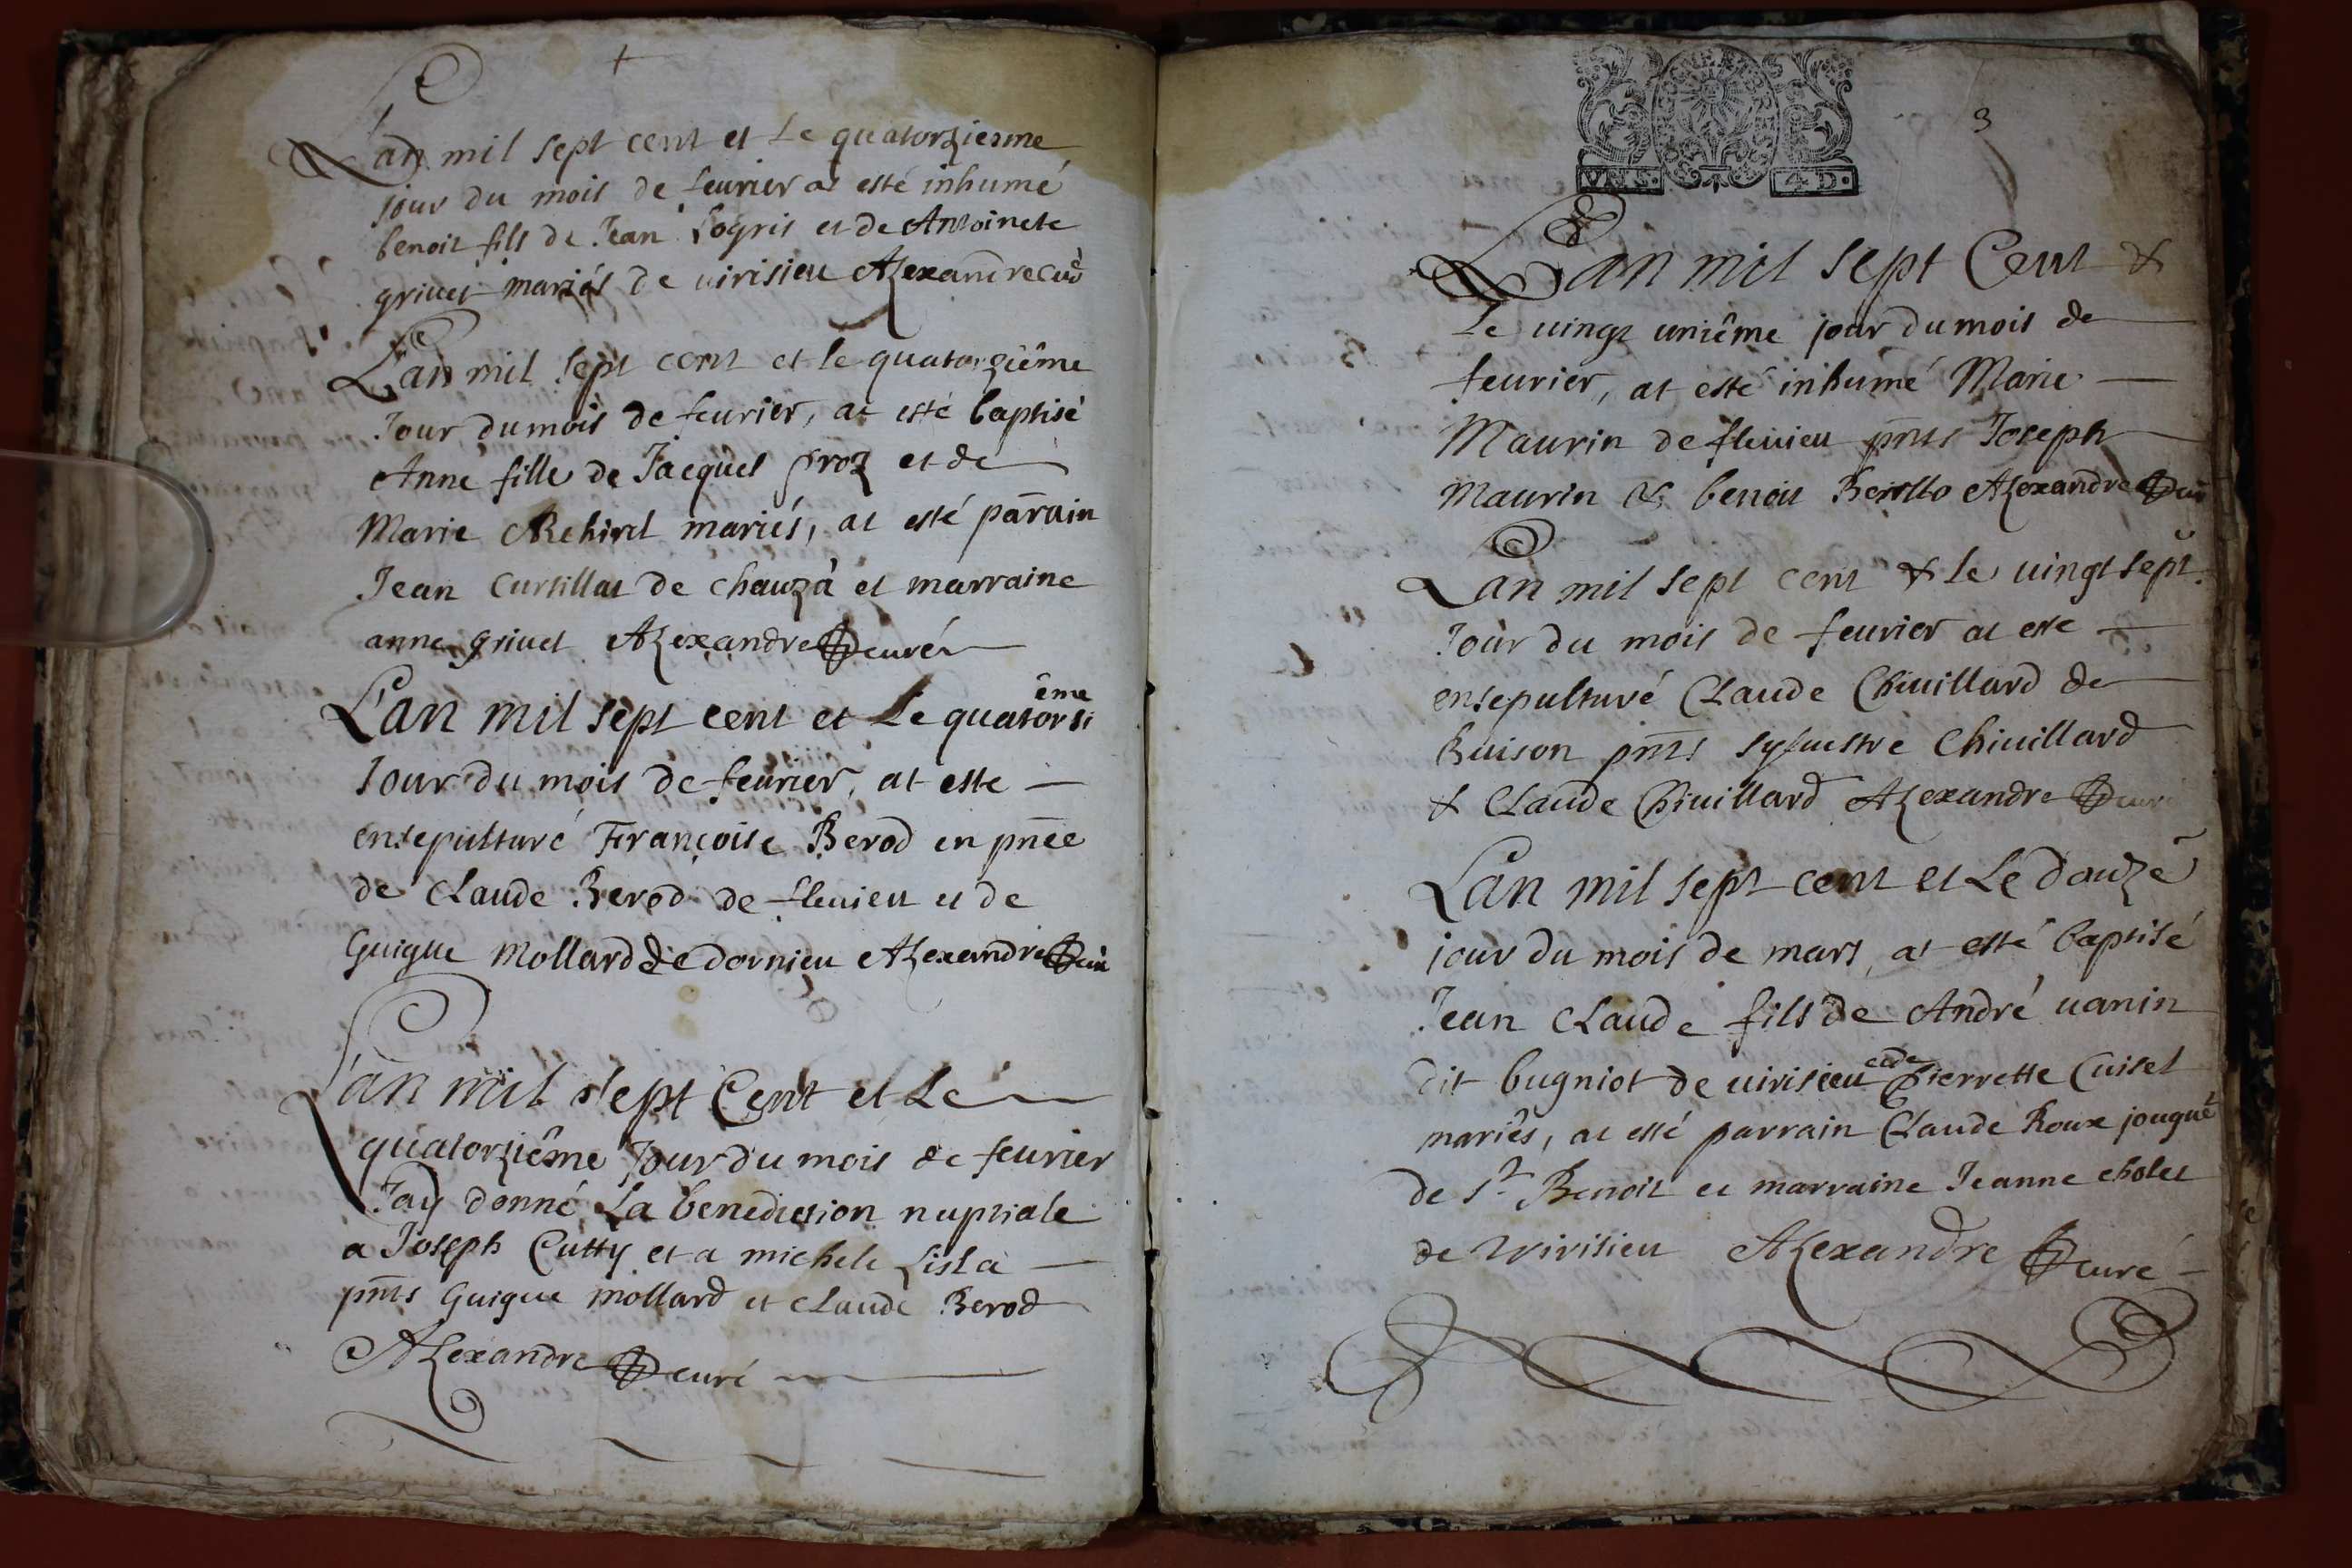 Lan mil sept cent et Le quatorziesme
jour du mois de feurier at esté inhumé
benoit fils de Jean Logris et de Antoinete
griuet mariés de uirisieu Alexandre curé
L'an mil sept cent et le quatorziême
Jour du mois de feurier, at esté baptisé
Anne fille de Jacques proz et de
Marie mariés, at esté parrain
Jean Curtillat de chauza et marraine
anne griuet Alexandre curé
L'an mil sept cent et Le quatorsiême
Jour du mois de feurier, at este
ensepulturé Françoise Berod en pñce
de Claude Berod de fleuieu et de
Guigue Mollard de dornieu Alexandre curé
L'an mil sept Cent et Le
quatorziême Jour du mois de feurier
Jay donné La benediction nuptiale
a Joseph Cutty et a michele Lisla
pñts Guigue mollard et Claude Berod
Alexandre curé
3
VN S. 4. D.
Lan mil sept Cent &
Le uingt uniême jour du mois de
feurier, at esté inhumé Marie
Maurin de fleuieu pñts Joseph
Maurin & benoit Alexandre curé
Lan mil sept cent & le uingt sept.
Jour du mois de feurier at este
ensepulturé Claude Chiuillard de
Buison pñts syluestre Chiuillard
& Claude Chiuillard Alexandre curé
Lan mil sept cent et Le douzê
jour du mois de mars, at esté baptisé
Jean Claude fils de André uanin
dit bugniot de uirisieu et de Pierrette Cuiset
mariês, at esté parrain Claude Roux jougué
de St Benoit et marraine Jeanne cholet
de Virisieu Alexandre curé